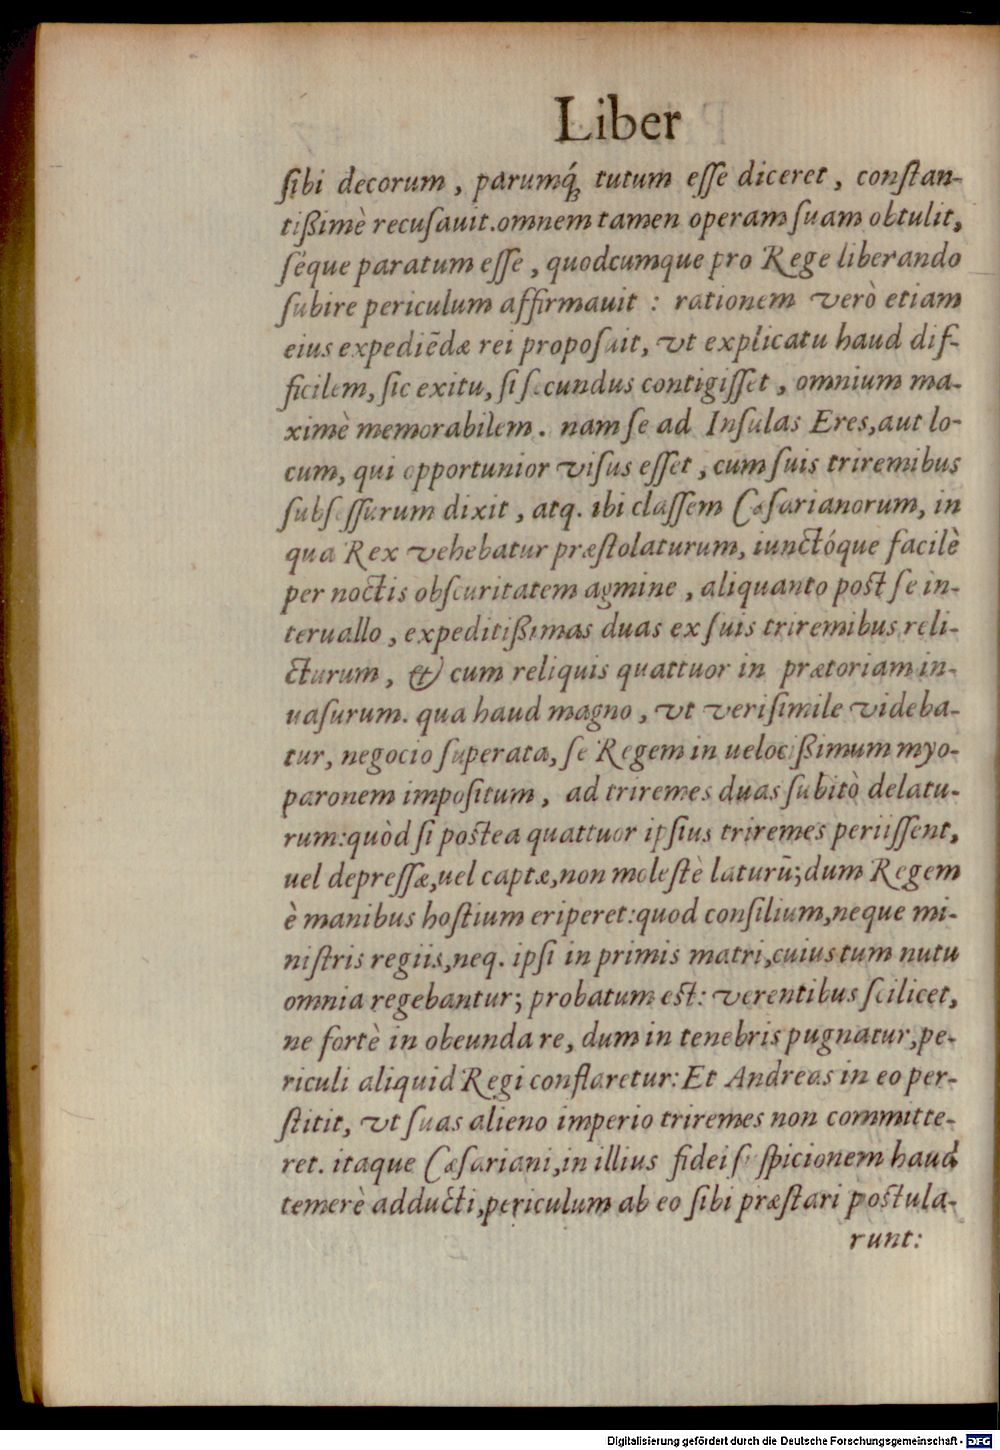 Liber
ſibi decorum, parumq́; tutum eſſe diceret, conſtan-
tißimè recuſauit. omnem tamen operam ſuam obtulit,
ſéque paratum eſſe, quodcumque pro Rege liberando
ſubire periculum affirmauit: rationem verò etiam
eius expediẽdæ rei propoſuit, vt explicatu haud dif-
ficilem, ſic exitu, ſi ſecundus contigiſſet, omnium ma-
ximè memorabilem. nam ſe ad Inſulas Eres, aut lo-
cum, qui opportunior viſus eſſet, cum ſuis triremibus
ſubſeſſurum dixit, atq. ibi claſſem Cæſarianorum, in
qua Rex vehebatur præſtolaturum, iunctóque facilè
per noctis obſcuritatem agmine, aliquanto post ſe in-
teruallo, expeditißimas duas ex ſuis triremibus reli-
cturum, & cum reliquis quattuor in prætoriam in-
uaſurum. qua haud magno, vt veriſimile videba-
tur, negocio ſuperata, ſe Regem in uelocißimum myo-
paronem impoſitum, ad triremes duas ſubitò delatu-
rum: quòd ſi postea quattuor ipſius triremes periiſſent,
uel depreſſæ, uel captæ, non molestè laturũ; dum Regem
è manibus hoſtium eriperet: quod conſilium, neque mi-
niſtris regiis, neq. ipſi in primis matri, cuius tum nutu
omnia regebantur; probatum est: verentibus ſcilicet,
ne fortè in obeunda re, dum in tenebris pugnatur, pe-
riculi aliquid Regi conflaretur: Et Andreas in eo per-
ſtitit, vt ſuas alieno imperio triremes non committe-
ret. itaque Cæſariani, in illius fidei ſuſpicionem haud
temerè adducti, periculum ab eo ſibi præſtari postula-
runt:
Digitalisierung gefördert durch die Deutsche Forschungsgemeinschaft - DFG